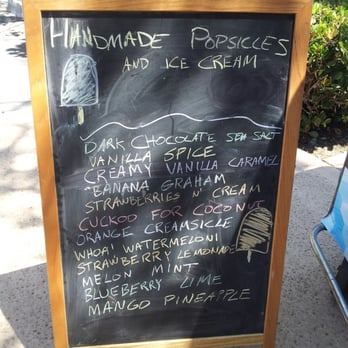 HANDMADE POPSICLES
AND ICE CREAM
DARK CHOCOLATE SEA SALT
VANILLA SPICE
CREAMY VANILLA CARAMEL
BANANA GRAHAM
STRAWBERRIES N' CREAM
CUCKOO FOR COCONUT
ORANGE CREAMSICLE
WHOA! WATERMELON!
STRAWBERRY LEMONADE
MELON MINT
BLUEBERRY LIME
MANGO PINEAPPLE